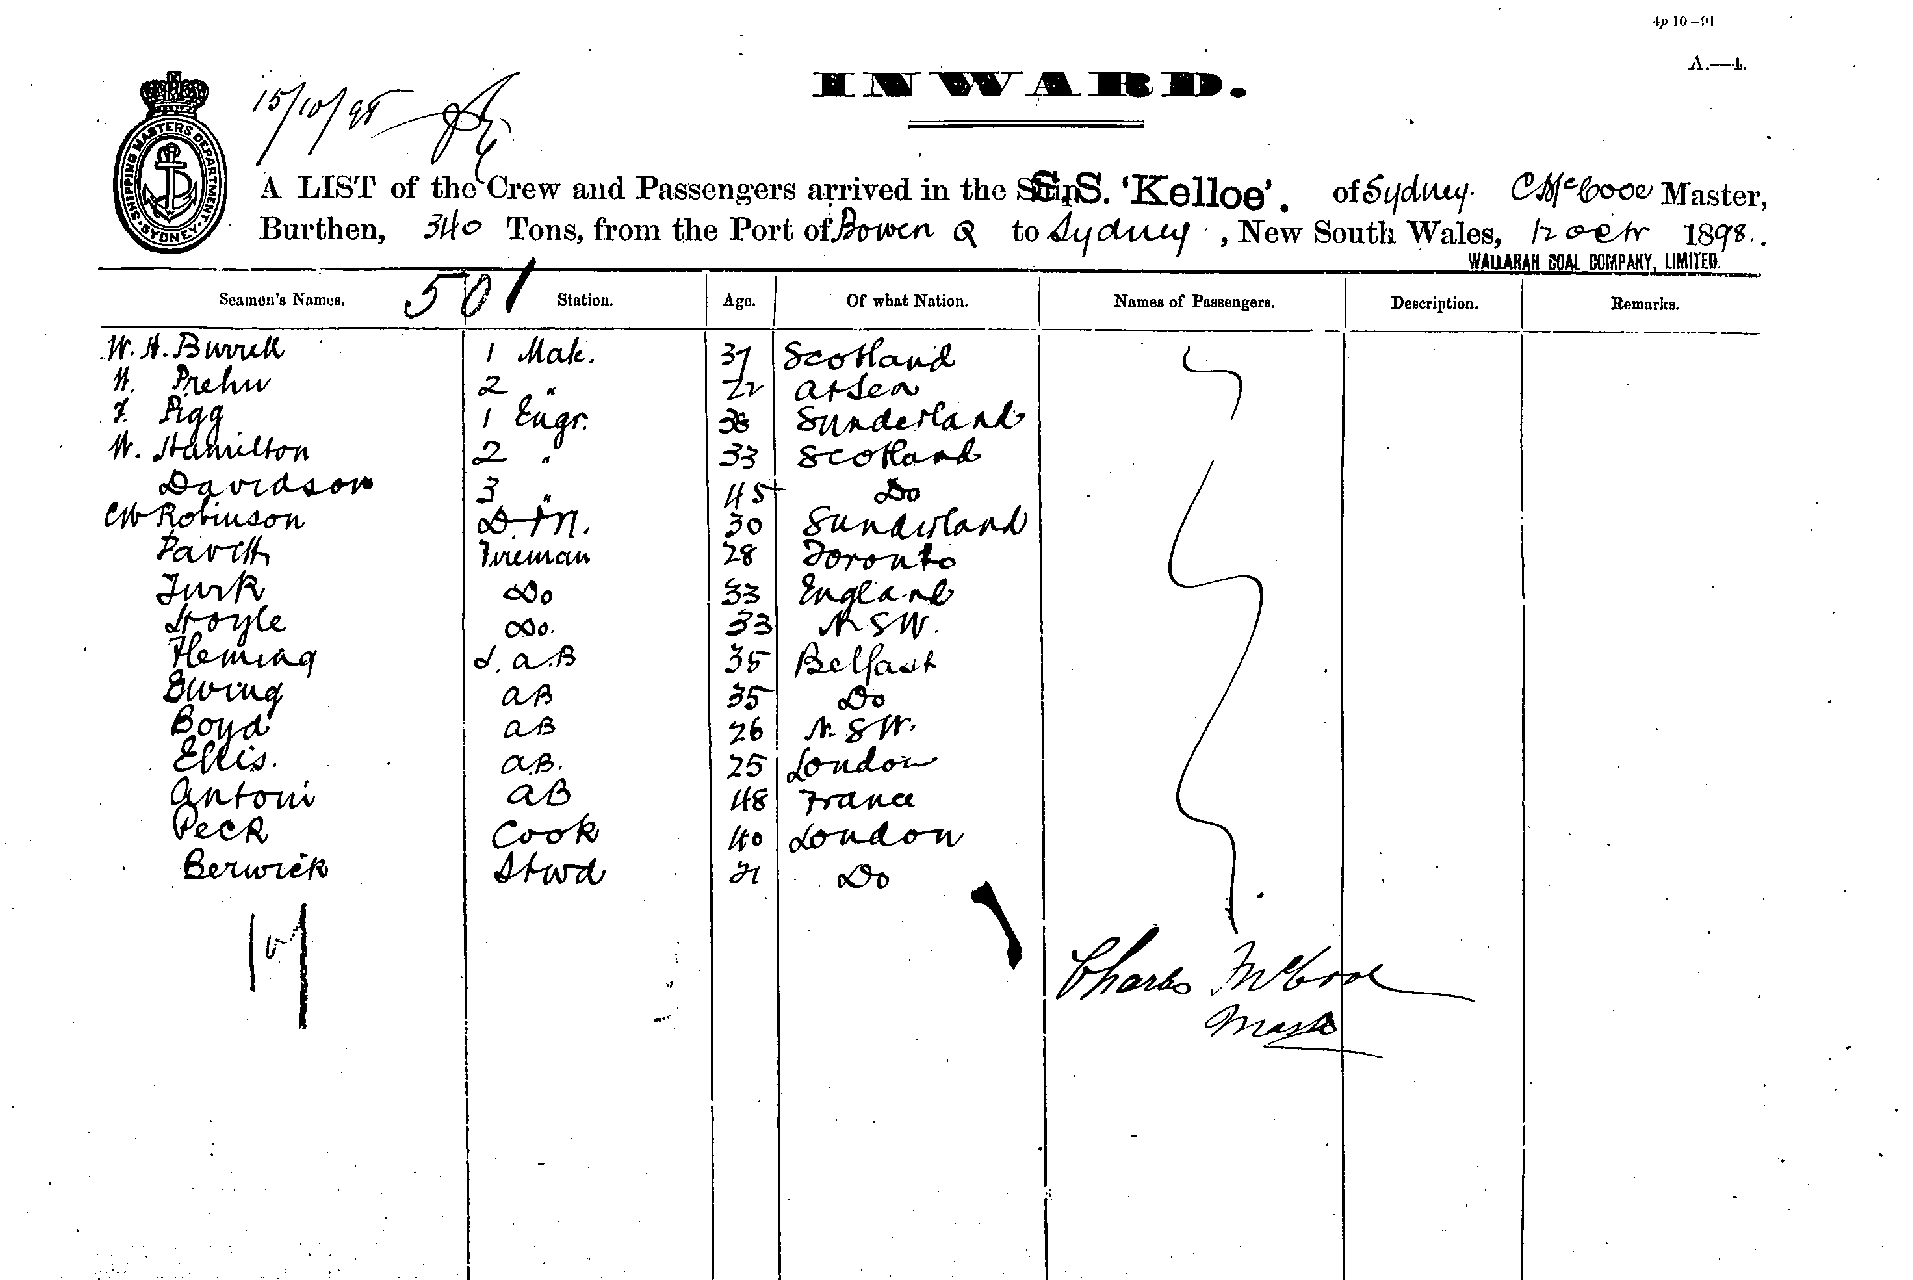 4p 10—91
A.—4.
INWARD.
15/10/98
SHIPPING MASTERS DEPARTMENT
SYDNEY
A LIST of the Crew and Passengers arrived in the S.S. 'Kelloe'. of Sydney. C McCooe Master,
Burthen, 340 Tons, from the Port of Bowen Q to Sydney, New South Wales, 12 Octr 1898.
WALLARAH COAL COMPANY, LIMITED.
501
Seamen's Names. Station. Age. Of what Nation. Names of Passengers. Description. Remarks.
W. H. Burrell 1 Mate. 37 Scotland
H. Prehn 2 " 22 at Sea
F. Pigg 1 Engr. 38 Sunderland
W. Hamilton 2 " 33 Scotland
Davidson 3 " 45 Do
CW Robinson D.M. 30 Sunderland
Fireman 28 Toronto
Turk Do 33 England
Hoyle Do. 33 N.S.W.
Fleming L.a.B 35 Belfast
Ewing aB 35 Do
Boyd aB 26 N.S.W.
Ellis. a.B. 25 London
Antoni aB 48 France
Peck Cook 40 London
Berwick Stwd 21 Do
Charles McCooe
Master